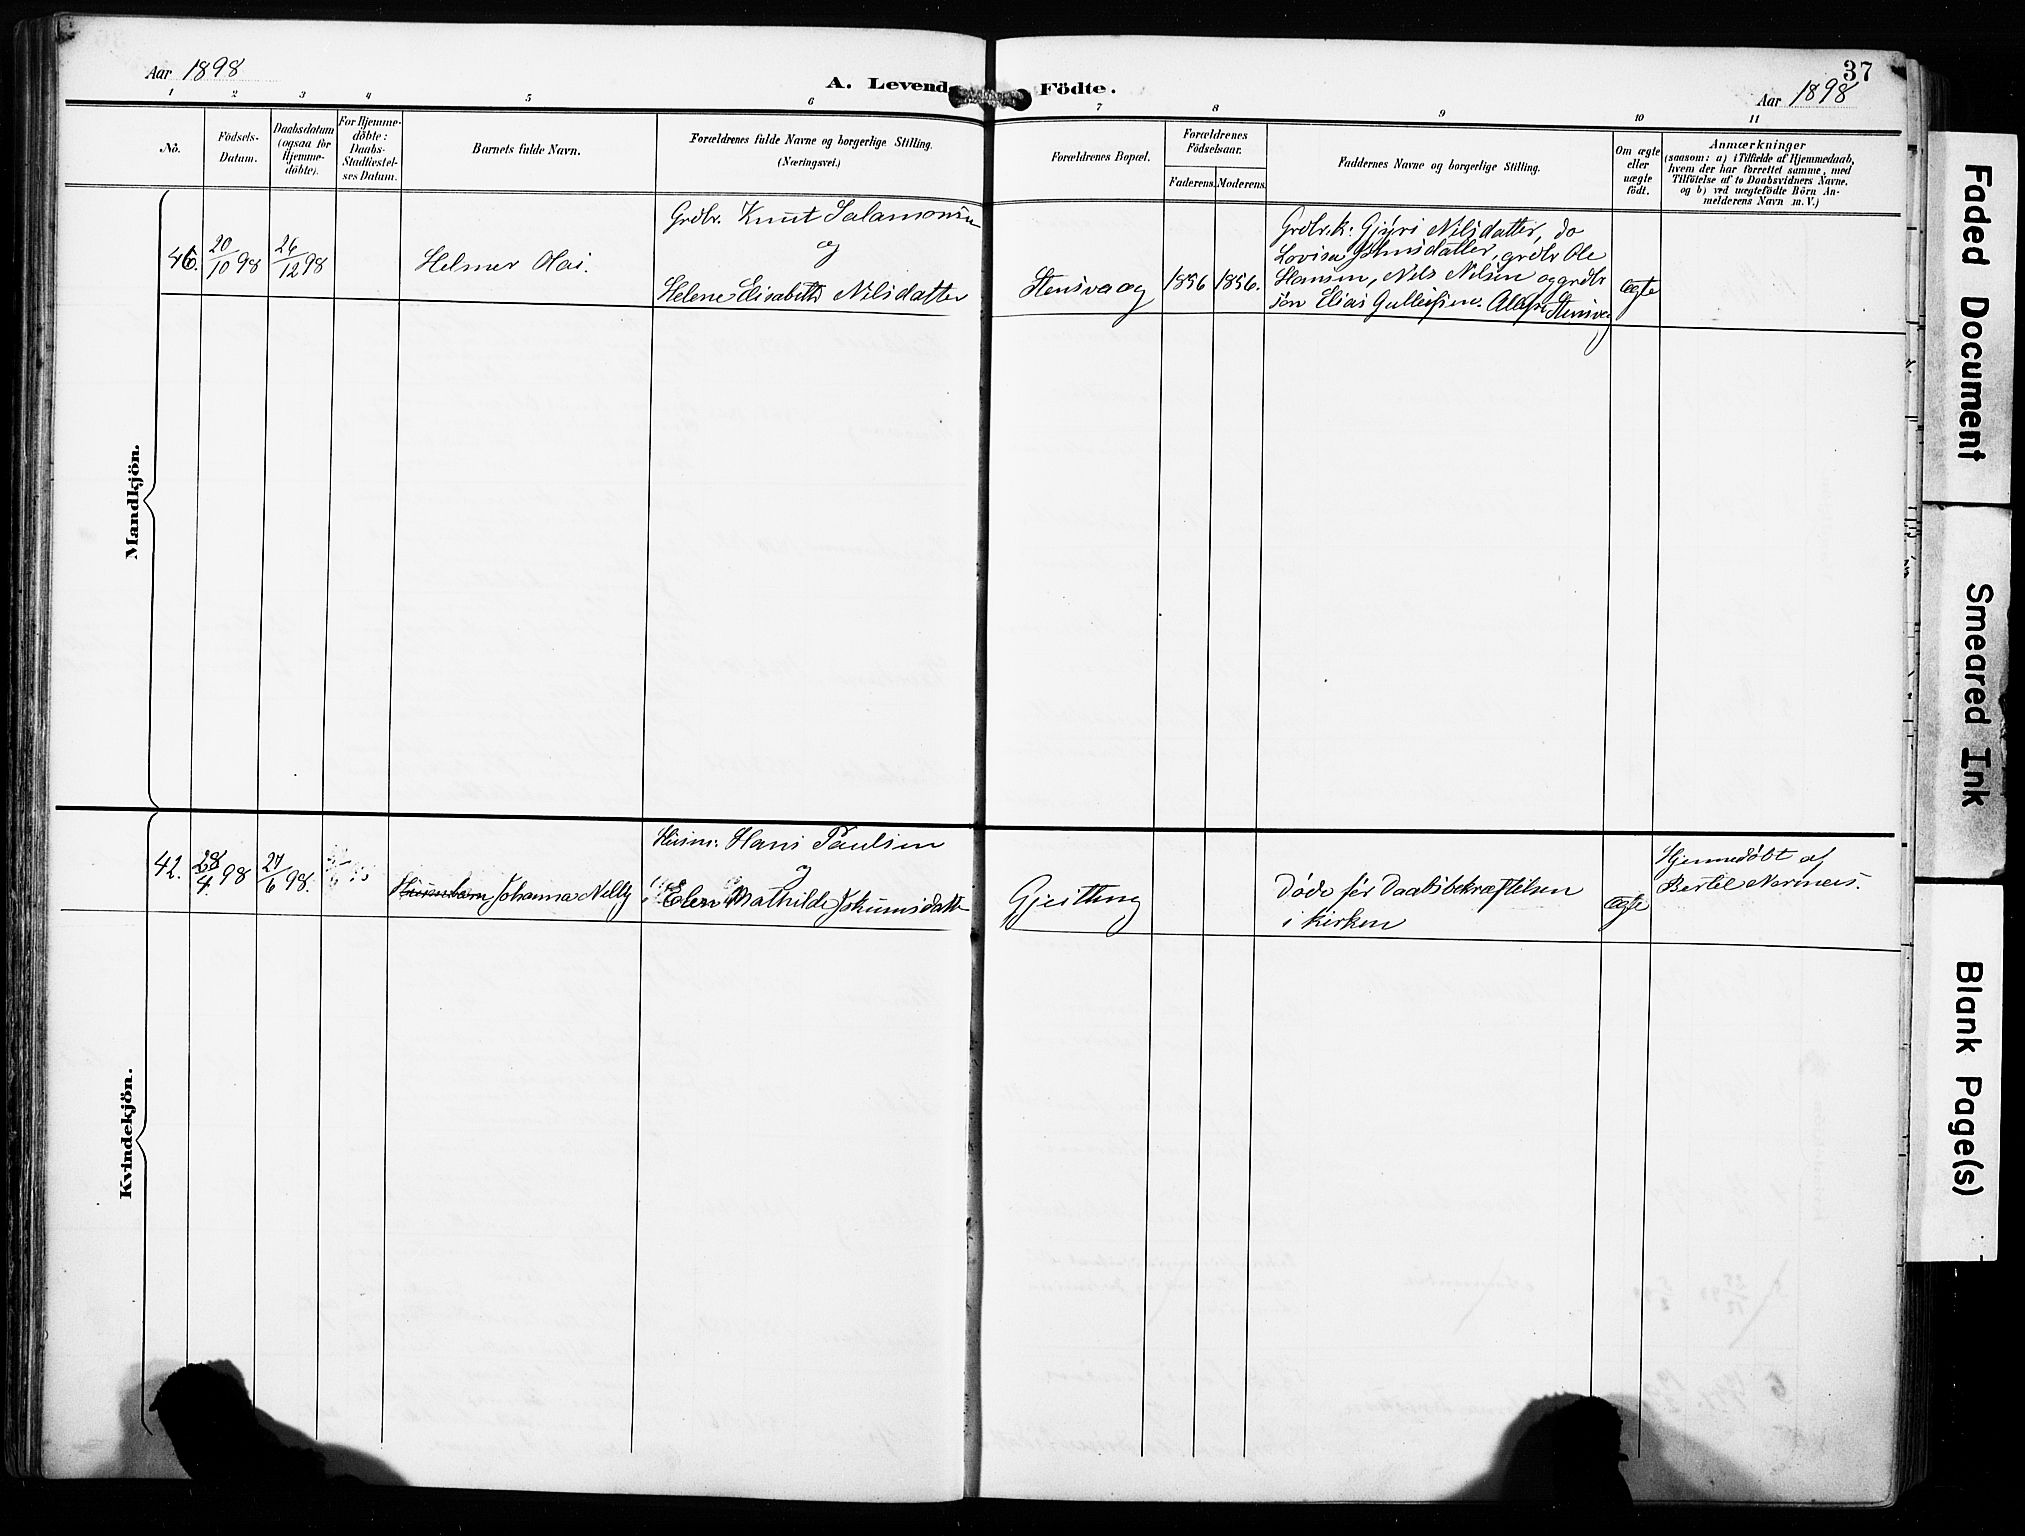 Aar 1898
A. Levend Födte.
37
Aar 1898
1 2 3 4 5 6 7 8 9 10 11
No.
Födsels-
Datum.
Daabsdatum
(ogsaa for
Hjemme-
döbte).
For Hjemme-
döbte:
Daabs-
Stadfæstel-
ses Datum.
Barnets fulde Navn.
Forældrenes fulde Navne og borgerlige Stilling.
(Næringsvei.)
Forældrenes Bopæl.
Forældrenes
Födselsaar.
Faderens. Moderens.
Faddernes Navne og borgerlige Stilling.
Om ægte
eller
uægte
födt.
Anmærkninger
(saasom: a) i Tilfælde af Hjemmedaab,
hvem der har forrettet samme, med
Tilföielse af to Daabsvidners Navne,
og b) ved uægtefödte Börn An-
melderens Navn m. V.)
Mandkjön.
46.
20/10 98
26/12 98
Helmer Olai.
Grdbr. Knut Salamonsen
og
Helene Elisabeth Nilsdatter
Stensvaag
1856
1856.
Grdbr.k: Gjøri Nilsdatter, do
Lovisa Johnsdatter, grdbr Ole
Hansen, Nels Nelsen og grdbr
søn Elias Gulleksen. Alle fra Stensvaag
ægte
Kvindekjön.
42.
28/4 98
27/6 98.
Johanna Nelly
Husm: Hans Paulsen
og
Elen Mathilde Jokumsdatter
Gjeitting
Døde før Daabsbekræftelsen
i kirken
ægte
Hjemmedøbt af
Bertel Normers.
Faded Document
Smeared Ink
Blank Page(s)